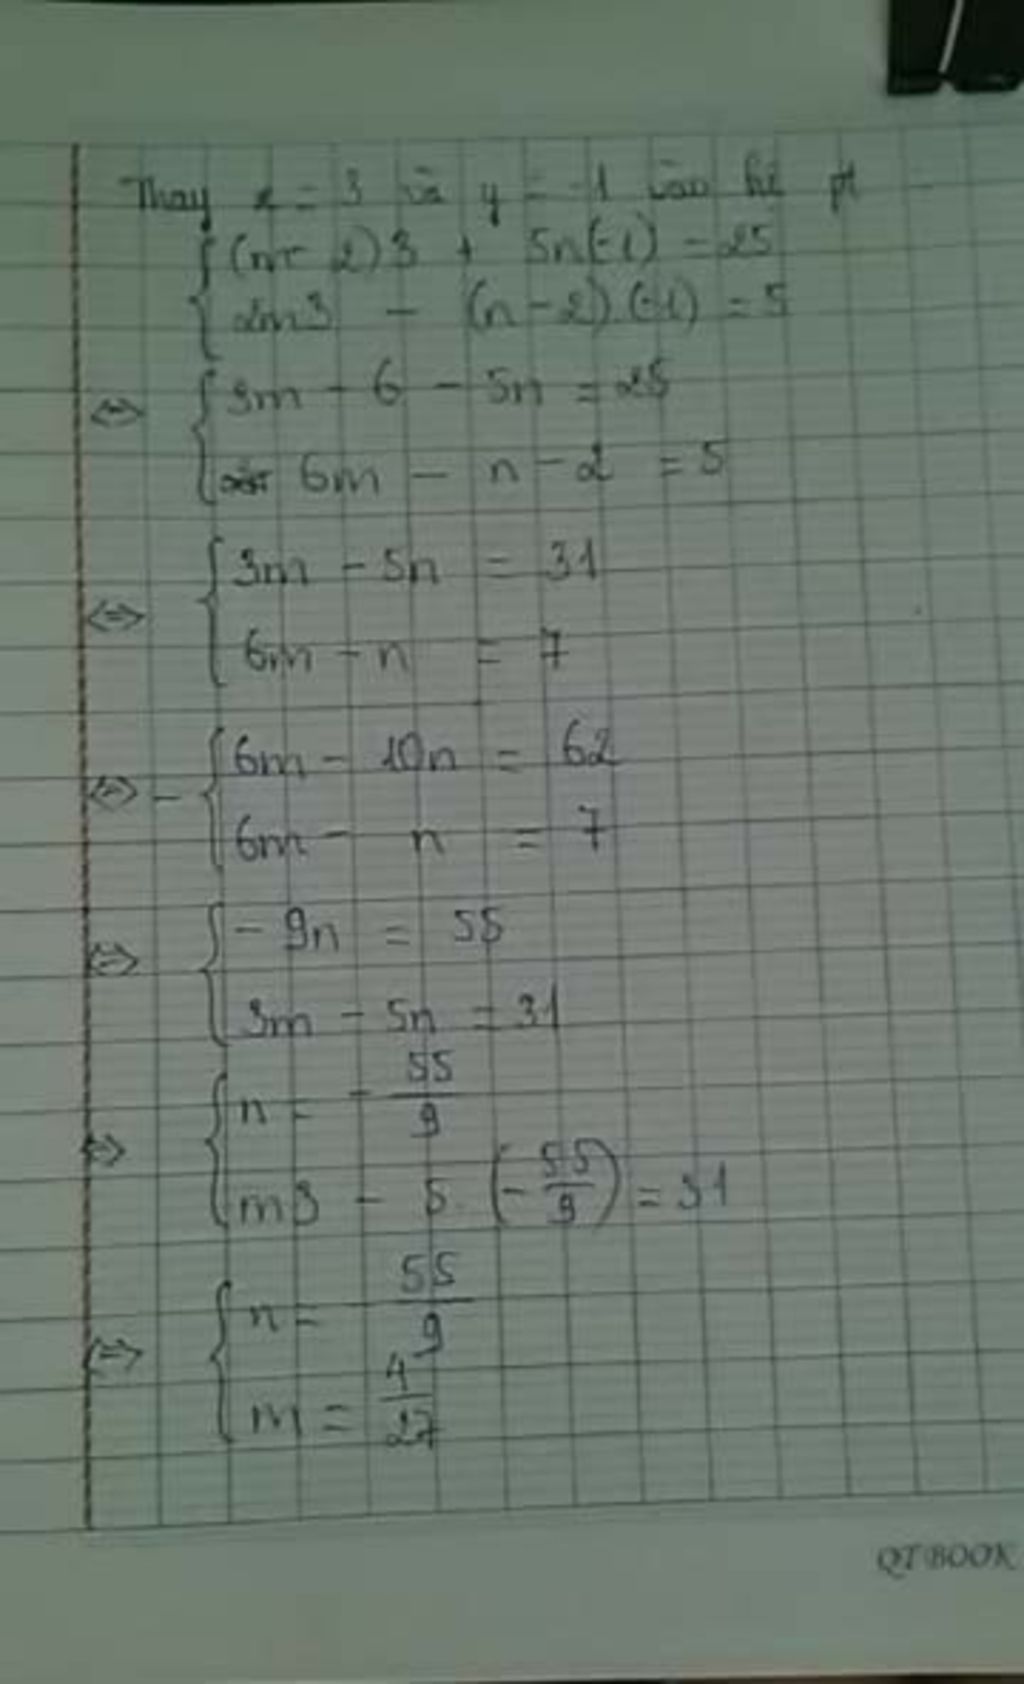 Thay x = 3 và y = -1 vào hệ pt
(m - 2)3 + 5n(-1) = 25
2m3 - (n-2)(-1) = 5
⇔ 3m - 6 - 5n = 25
6m - n - 2 = 5
⇔ 3m - 5n = 31
6m - n = 7
⇔ - 6m - 10n = 62
6m - n = 7
⇔ - 9n = 55
3m - 5n = 31
⇔ n = - 55/9
m3 - 5. (-55/9) = 31
⇔ n = - 55/9
m = 4/27
QT BOOK